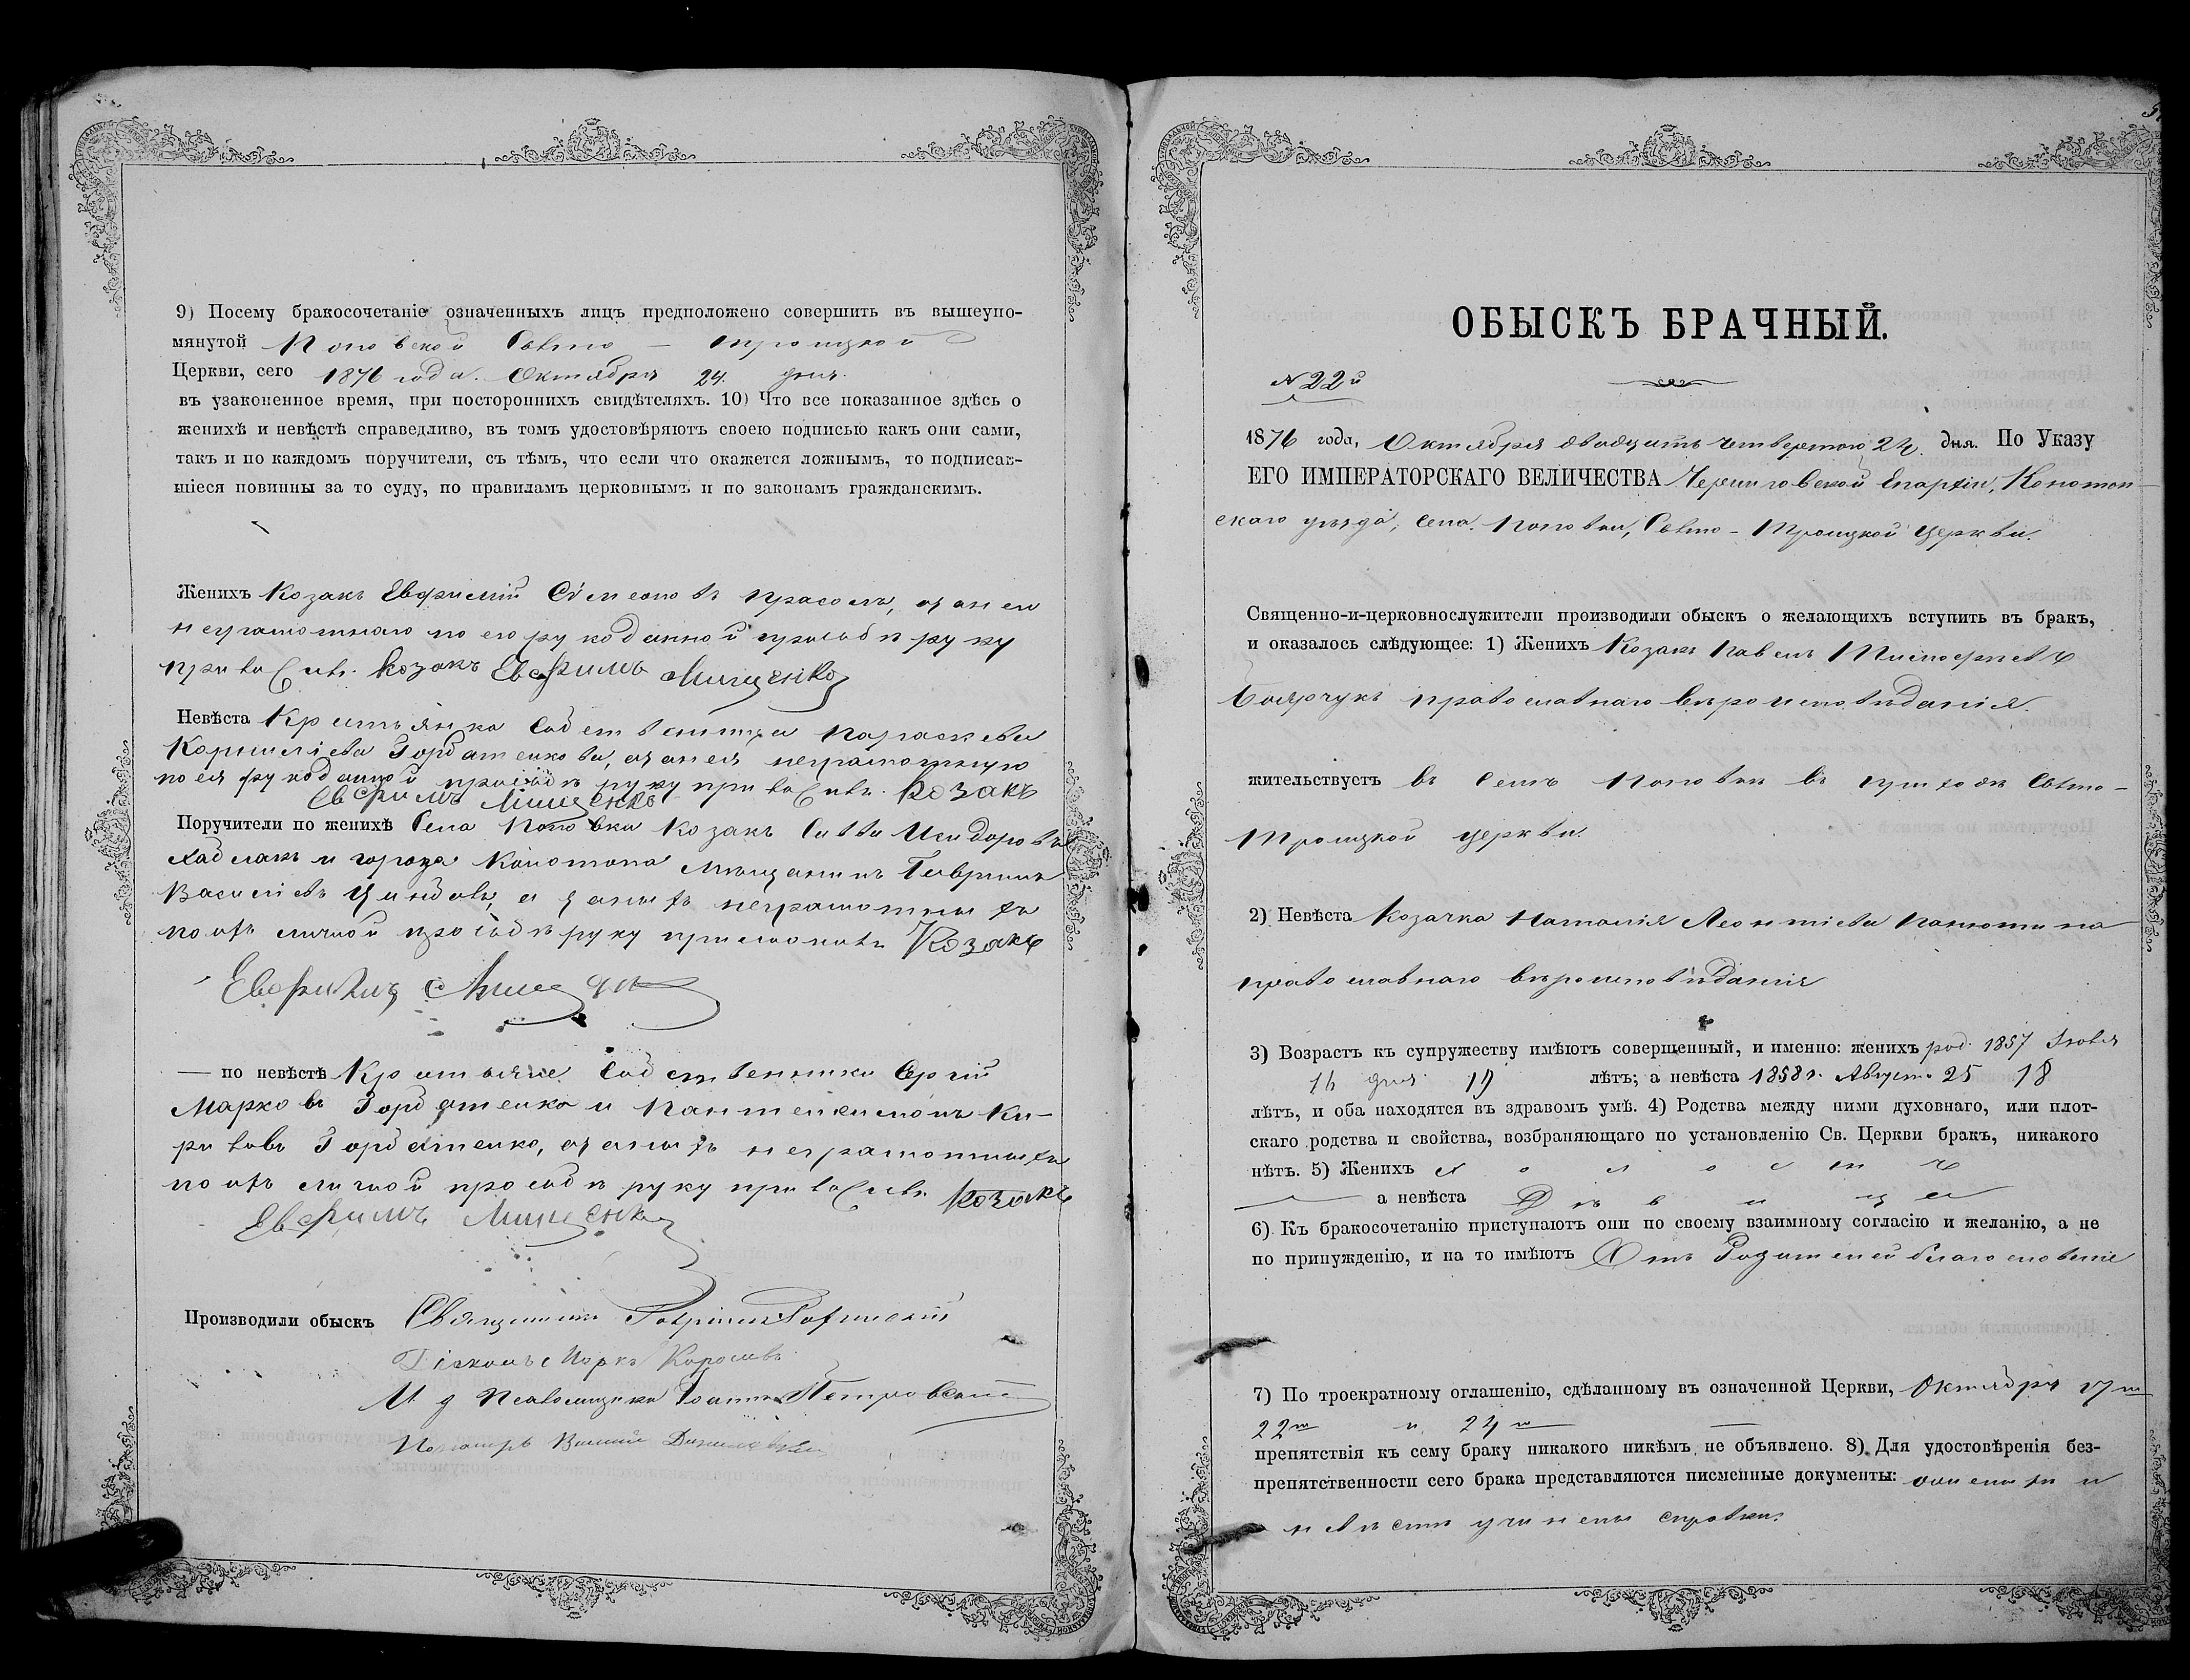 9) Посему бракосочетаніе означенныхъ лицъ предположено совершить въ вышеупо-
мянутой Поповской Свято - Троицкой
Церкви, сего 1876 года. Октября 24. дня.
въ узаконенное время, при постороннихъ свидѣтеляхъ. 10) Что все показанное здѣсь о
женихѣ и невѣстѣ справедливо, въ томъ удостовѣряютъ своею подписью какъ они сами,
такъ и по каждомъ поручители, съ тѣмъ, что если что окажется ложнымъ, то подписав-
шіеся повинны за то суду, по правиламъ церковнымъ и по законамъ гражданскимъ.
Женихъ Козакъ Евфимій Сімеоновъ Прасолъ, а за него
неграмотнаго по его рукоданной прозьбѣ руку
приложилъ козакъ Евфимъ Мищенко
Невѣста Крестьянка Собственница Параскева
Корниліева Горбатенкова, а за нея неграмотную
по ея рукоданной прозьбѣ руку приложилъ Козакъ
Евфимъ Мищенко
Поручители по женихѣ Села Поповки Козакъ Савва Исидоровъ
и города Конотопа Мѣщанинъ Гавріилъ
Василіевъ а за нихъ неграмотныхъ
по ихъ личной прозьбѣ руку приложилъ Козакъ
Евфимъ Мищенко
— по невѣстѣ Крестьяне Собственники Сергій
Марковъ Горбатенко и Пантелеимонъ Ки-
риловъ Горбатенко, а за нихъ неграмотныхъ
по ихъ личной прозьбѣ руку приложилъ Козакъ
Евфимъ Мищенко
Производили обыскъ Священникъ Гавріилъ
Діаконъ Маркъ
И д Псаломщика Іоаннъ Петровскій
Пономарь
ОБЫСКЪ БРАЧНЫЙ.
№ 22й
1876 года, Октября двадцать четвертого 24. дня. По Указу
ЕГО ИМПЕРАТОРСКАГО ВЕЛИЧЕСТВА Черниговской Епархіи, Конотоп-
скаго уѣзда, села Поповки, Свято - Троицкой церкви.
Священно-и-церковнослужители производили обыскъ о желающихъ вступить въ бракъ,
и оказалось слѣдующее: 1) Женихъ Козакъ Павелъ Тимофеевъ
Боярчукъ православнаго вѣроисповѣданія
жительствуетъ въ селѣ Поповкѣ въ приходѣ Свято-
Троицкой церкви.
2) Невѣста Козачка Наталія Леонтіева
православнаго вѣроисповѣданія
3) Возрастъ къ супружеству имѣютъ совершенный, и именно: женихъ род. 1857
16 дня 19 лѣтъ; а невѣста 1858 г. Август. 25 18
лѣтъ, и оба находятся въ здравомъ умѣ. 4) Родства между ними духовнаго, или плот-
скаго родства и свойства, возбраняющаго по установленію Св. Церкви бракъ, никакого
нѣтъ. 5) Женихъ холостъ
а невѣста Дѣвица
6) Къ бракосочетанію приступаютъ они по своему взаимному согласію и желанію, а не
по принужденію, и на то имѣютъ Отъ Родителей благословеніе
7) По троекратному оглашенію, сдѣланному въ означенной Церкви, Октября 17го
22го и 24го
препятствія къ сему браку никакого никѣмъ не объявлено. 8) Для удостовѣренія без-
препятственности сего брака представляются писменные документы: о женихѣ и
невѣстѣ учинены справки.